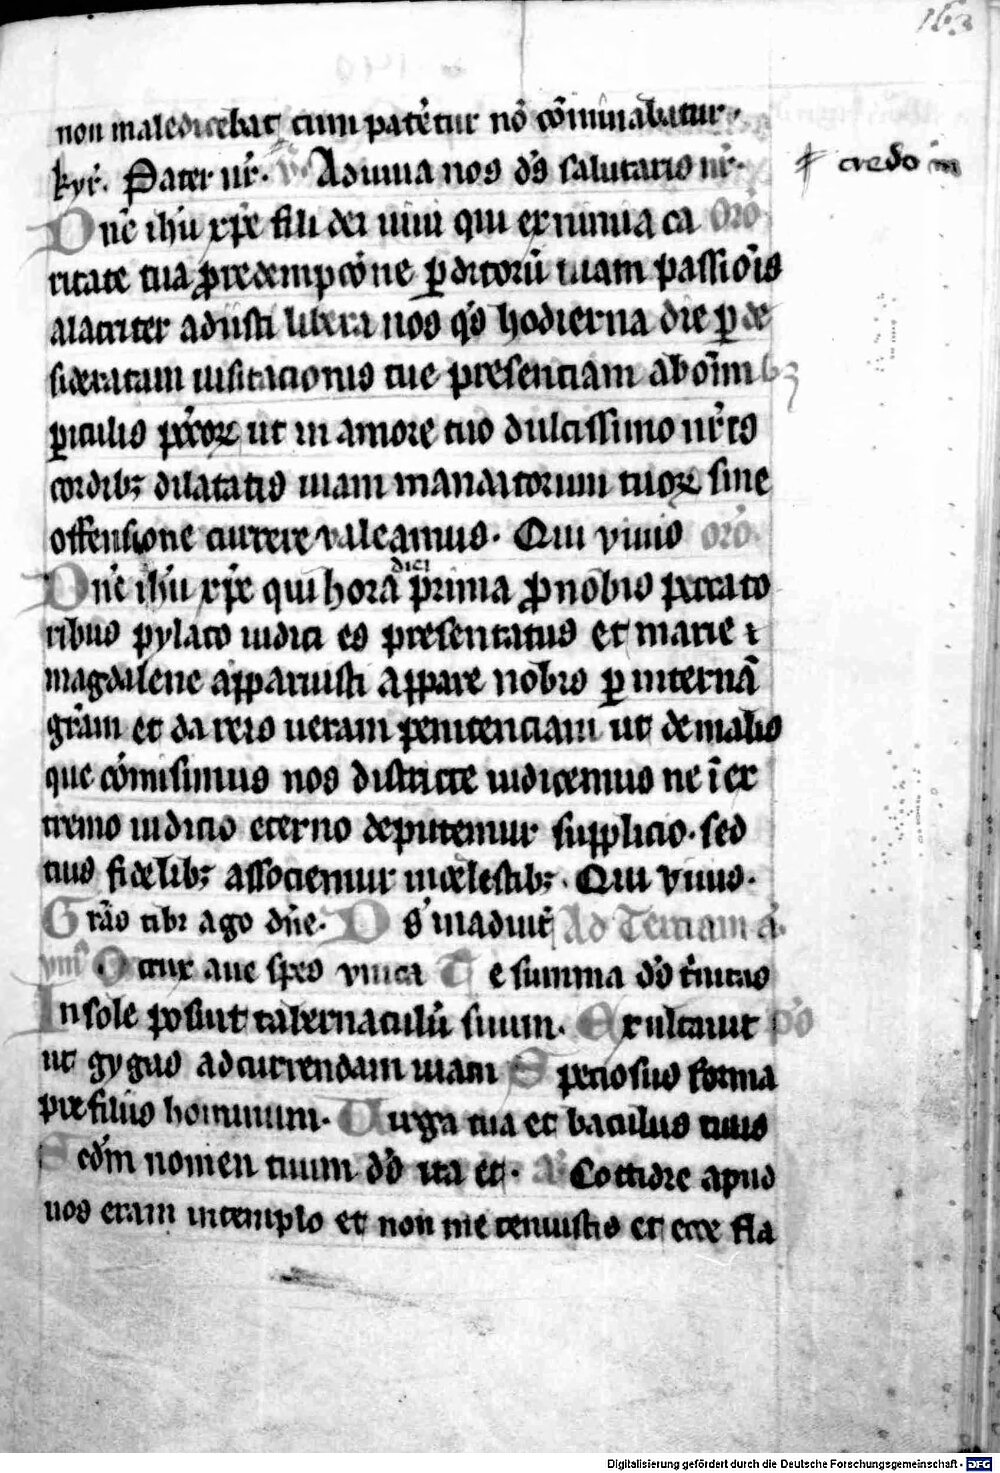 163
non maledicebat cum pat̄etur nō cōminabatur·
kyr̄. Pater nr̄. Adiuua nos ds̄ salutaris nr̄·
credo in
Dn̄e ihū xp̄e fili dei uiui qui ex nimia ca oro
ritate tua ꝓ redempcōne ꝑditorū uiam passiōis
alacriter adiisti libera nos qs̄ hodierna die ꝑ de
sideratam uisitacionis tue presenciam ab oīmbꝫ
ꝑiculis pc̄coꝝ ut in amore tuo dulcissimo nr̄is
cordibꝫ dilatatis uiam mandatorum tuoꝝ sine
offensione currere ualeamus. Qui viuis oro
Dn̄e ihū xp̄e qui hora diei prima ꝓ nobis peccato
ribus pylato iudici es presentatus et marie
magdalene apparuisti appare nobis ꝑ internā
grām et da ueram penitenciam ut de malis
que cōmisimus nos districte iudicemus ne ī ex
tremo iudicio eterno deputemur supplicio. sed
tuis fidelibꝫ associemur in celestibꝫ. Qui viuis.
Grās tibi ago dn̄e. Ds̄ in adiut̄ Ad Terciam
ymō O crux aue spes vnica Te summa ds̄ t̄nitas
In sole posuit tabernaculū suum. Exultauit pō
ut gygas ad currendam uiam Speciosus forma
pre filiis hominum. Uirga tua et baculus tuus
Scdm̄ nomen tuum ds̄ ita et. Cottidie apud
uos eram in templo et non me tenuistis et ecce fla
Digitalisierung gefördert durch die Deutsche Forschungsgemeinschaft - DFG